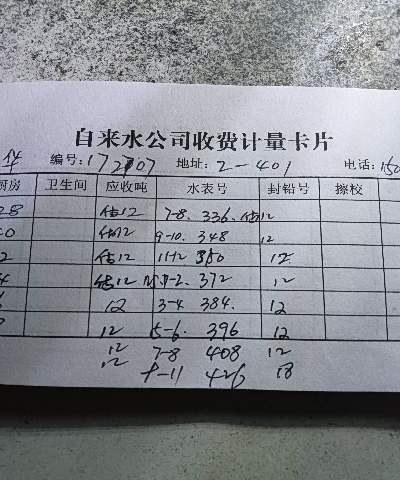 自来水公司收费计量卡片
华 编号:172707 地址:2-401 电话:150
厨房 卫生间 应收吨 水表号 封铅号 擦校
28 估12 7-8. 336. 估12
0 估12 9-10. 348 12
2 估12 11-12 360 12
4 估12 1-2. 372 12
12 3-4 384. 12
12 5-6. 396 12
12 7-8 408 12
12 9-11 426 18